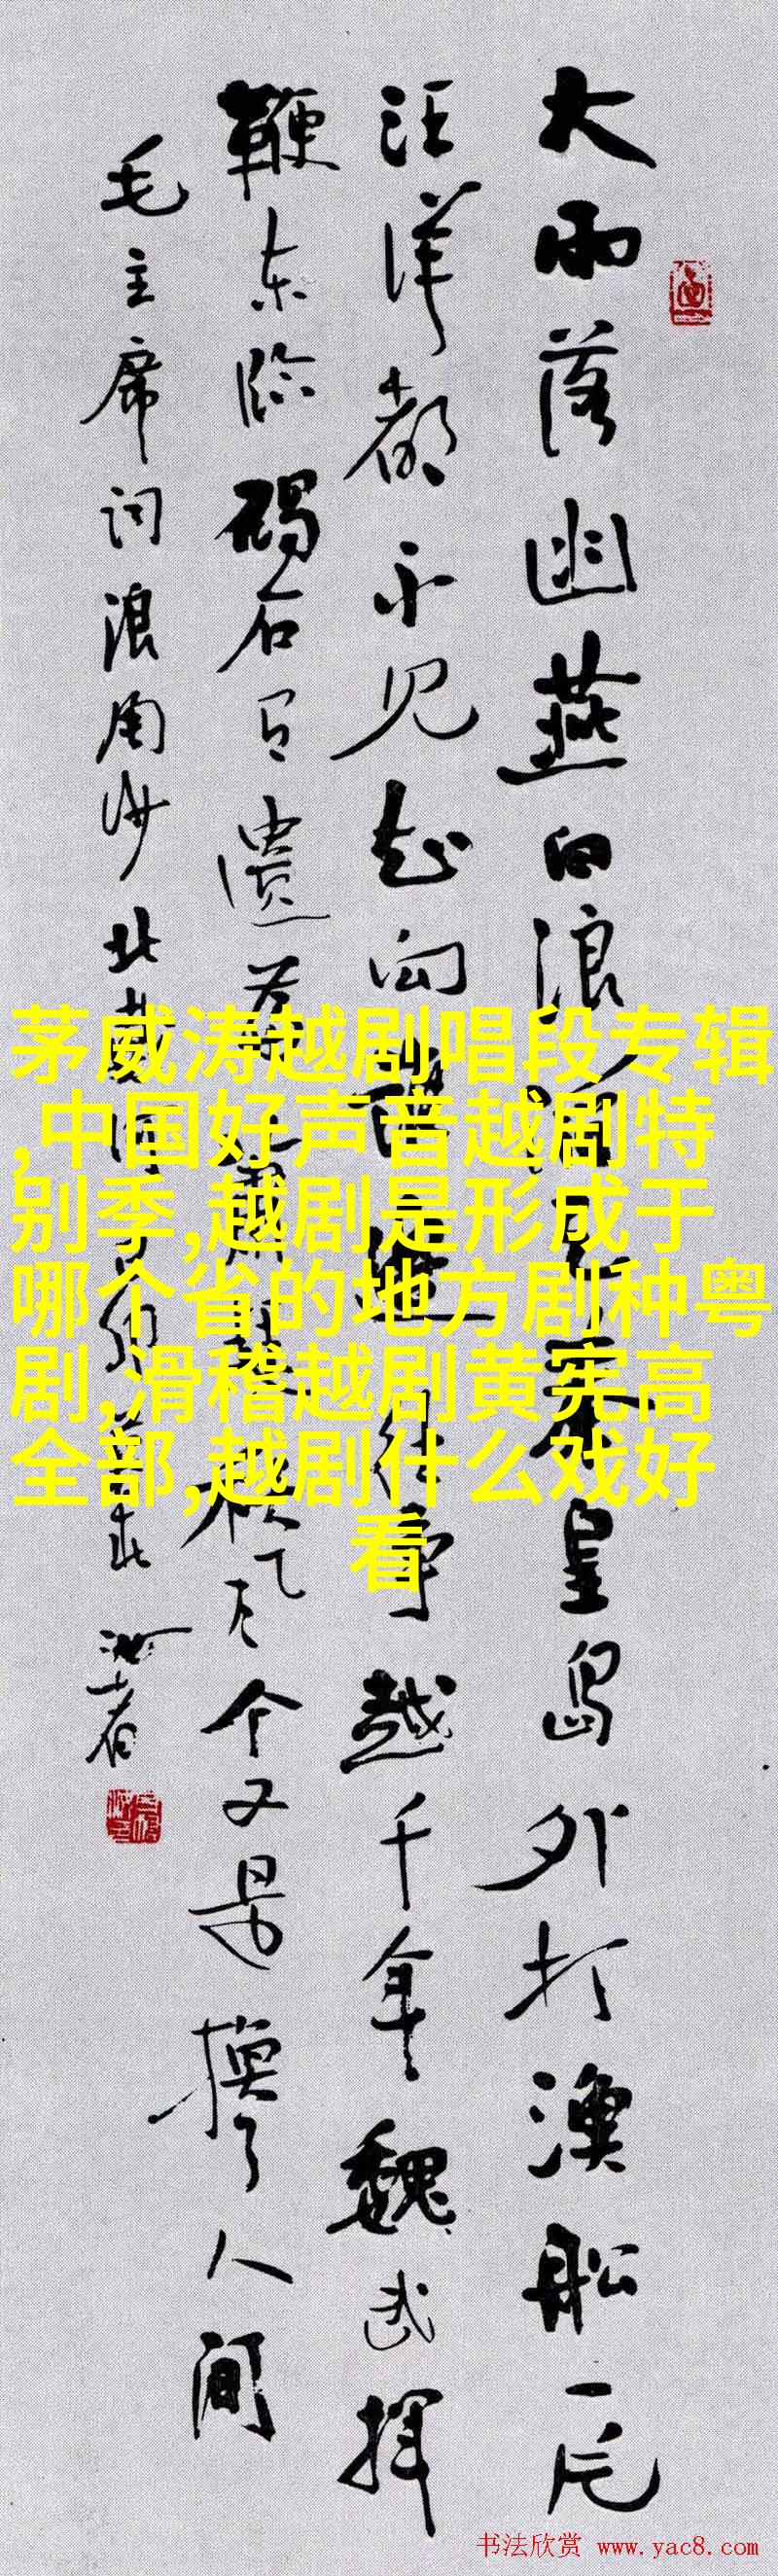 大雨落幽燕白浪滔天秦皇島外打漁船一片
汪洋都不见知向誰邊往事越千年魏武揮
鞭东临碣石有遺篇萧瑟秋风今又是换了人间
毛主席词浪淘沙北戴河
茅威涛越剧唱段专辑
,中国好声音越剧特
别季,越剧是形成于
哪个省的地方剧种粤
剧,滑稽越剧黄宪高
全部,越剧什么戏好
看
书法欣赏 www.yac8.com